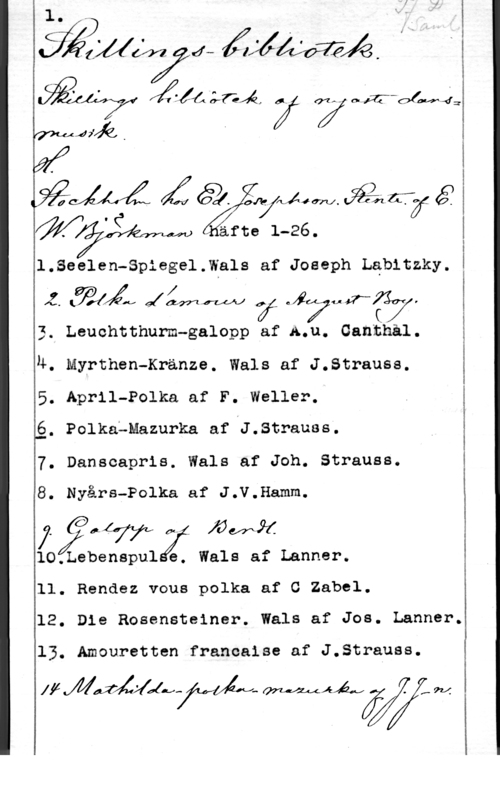 1.
Skillings-bibliotek.
Skillings bibliotek af nyaste dans=
musik.
Stockholm hos Ed. Josephson. Stentr. af E.
W. Björkman häfte 1-26.
1.Seelen-Spiegel.Wals af Joseph Labitzky.
2. Polka d'amour af August Boy.
3. Leuchtthurm-galopp af A.u. Canthal.
4. Myrthen-Kränze. Wals af J.Strauss.
5. April-Polka af F. Weller.
6. Polka-Mazurka af J.Strauss.
7. Danscapris. Wals af Joh. Strauss.
8. Nyårs-Polka af J.V.Hamm.
9. Galopp af Bendl.
10.Lebenspulse. Wals af Lanner.
11. Rendez vous polka af C Zabel.
12. Die Rosensteiner. Wals af Jos. Lanner.
13. Amouretten francaise af J.Strauss.
14 Mathilda-polka-mazurka af J. J-n.